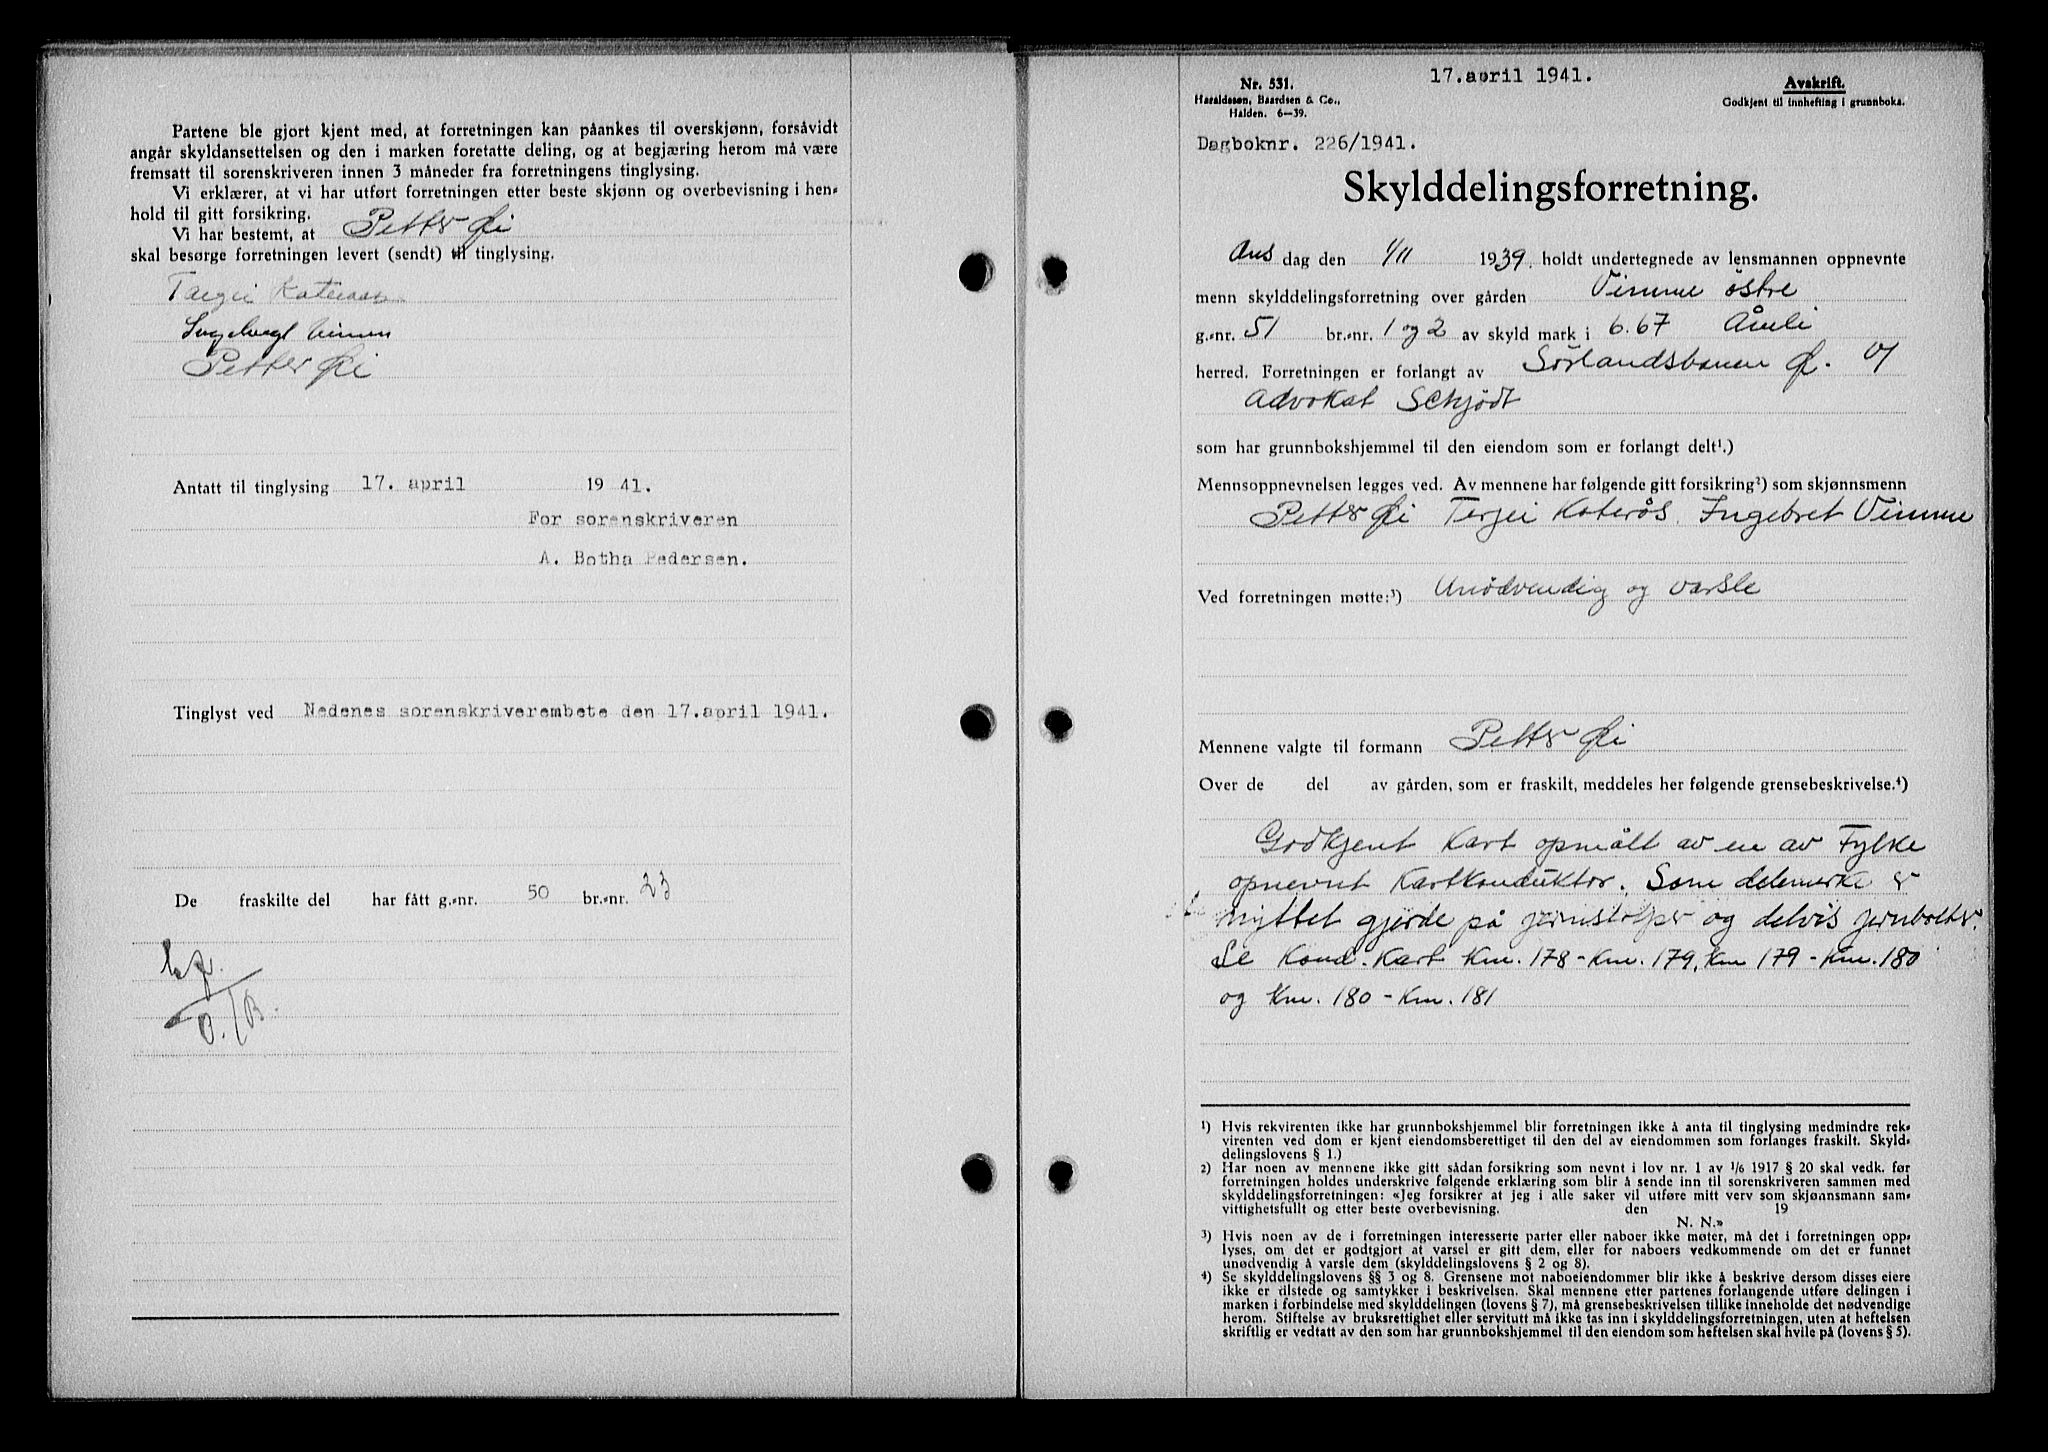 Partene ble gjort kjent med, at forretningen kan påankes til overskjønn, forsåvidt
angår skyldansettelsen og den i marken foretatte deling, og at begjæring herom må være
fremsatt til sorenskriveren innen 3 måneder fra forretningens tinglysing.
Vi erklærer, at vi har utført forretningen etter beste skjønn og overbevisning i hen-
hold til gitt forsikring.
Vi har bestemt, at Petter Øi
skal besørge forretningen levert (sendt) til tinglysing.
Terjei Kateraas
Ingebregt Vimme
Petter Øi
Antatt til tinglysing 17. april 1941.
For sorenskriveren
A. Botha Pedersen.
Tinglyst ved Nedenes sorenskriverembete den 17.april 1941.
De fraskilte del har fått g.-nr. 50 br.-nr. 23
17.april 1941.
Nr. 531.
Haraldssøn, Baardsen & Co.,
Halden. 6—39.
Avskrift.
Godkjent til innhefting i grunnboka.
Dagboknr. 226/1941.
Skylddelingsforretning.
Ons dag den 1/11 1939. holdt undertegnede av lensmannen oppnevnte
menn skylddelingsforretning over gården Vimme östre
g.-nr. 51 br.-nr. 1 og 2 av skyld mark i 6.67 Åmli
herred. Forretningen er forlangt av Sörlandsbanen Ø. v/
Advokat Schjödt
som har grunnbokshjemmel til den eiendom som er forlangt delt¹.)
Mennsoppnevnelsen legges ved. Av mennene har følgende gitt forsikring²) som skjønnsmenn
Petter Øi Terjei Katerås. Ingebret Vimme
Ved forretningen møtte:³) Unödvendig og varsle
Mennene valgte til formann Petter Øi
Over de del av gården, som er fraskilt, meddeles her følgende grensebeskrivelse.⁴)
Godkjent Kart opmålt av en av Fylke
opnevnt Kartkonduktör. Som delemerke er
nyttet gjerde på jernstolper og delvis jernbolter.
Se Kond. Kart Km. 178 - Km. 179, Km 179 - Km. 180
og Km. 180 - Km. 181
¹) Hvis rekvirenten ikke har grunnbokshjemmel blir forretningen ikke å anta til tinglysing medmindre rek-
virenten ved dom er kjent eiendomsberettiget til den del av eiendommen som forlanges fraskilt. Skyld-
delingslovens § 1.)
²) Har noen av mennene ikke gitt sådan forsikring som nevnt i lov nr. 1 av 1/6 1917 § 20 skal vedk. før
forretningen holdes underskrive følgende erklæring som blir å sende inn til sorenskriveren sammen med
skylddelingsforretningen: «Jeg forsikrer at jeg i alle saker vil utføre mitt verv som skjønnsmann sam-
vittighetsfullt og etter beste overbevisning. den 19
N. N.»
³) Hvis noen av de i forretningen interesserte parter eller naboer ikke møter, må det i forretningen opp-
lyses, om det er godtgjort at varsel er gitt dem, eller for naboers vedkommende om det er funnet
unødvendig å varsle dem (skylddelingslovens § 2 og 8).
⁴) Se skylddelingslovens §§ 3 og 8. Grensene mot naboeiendommer blir ikke å beskrive dersom disses eiere
ikke er tilstede og samtykker i beskrivelsen. Skal mennene etter partenes forlangende utføre delingen i
marken i forbindelse med skylddelingen (lovens § 7), må grensebeskrivelsen tillike inneholde det nødvendige
herom. Stiftelse av bruksrettighet eller servitutt må ikke tas inn i skylddelingsforretningen, uten at heftelsen
skriftlig er vedtatt av den som har grunnbokshjemmel til den eiendom som heftelsen skal hvile på (lovens § 5).